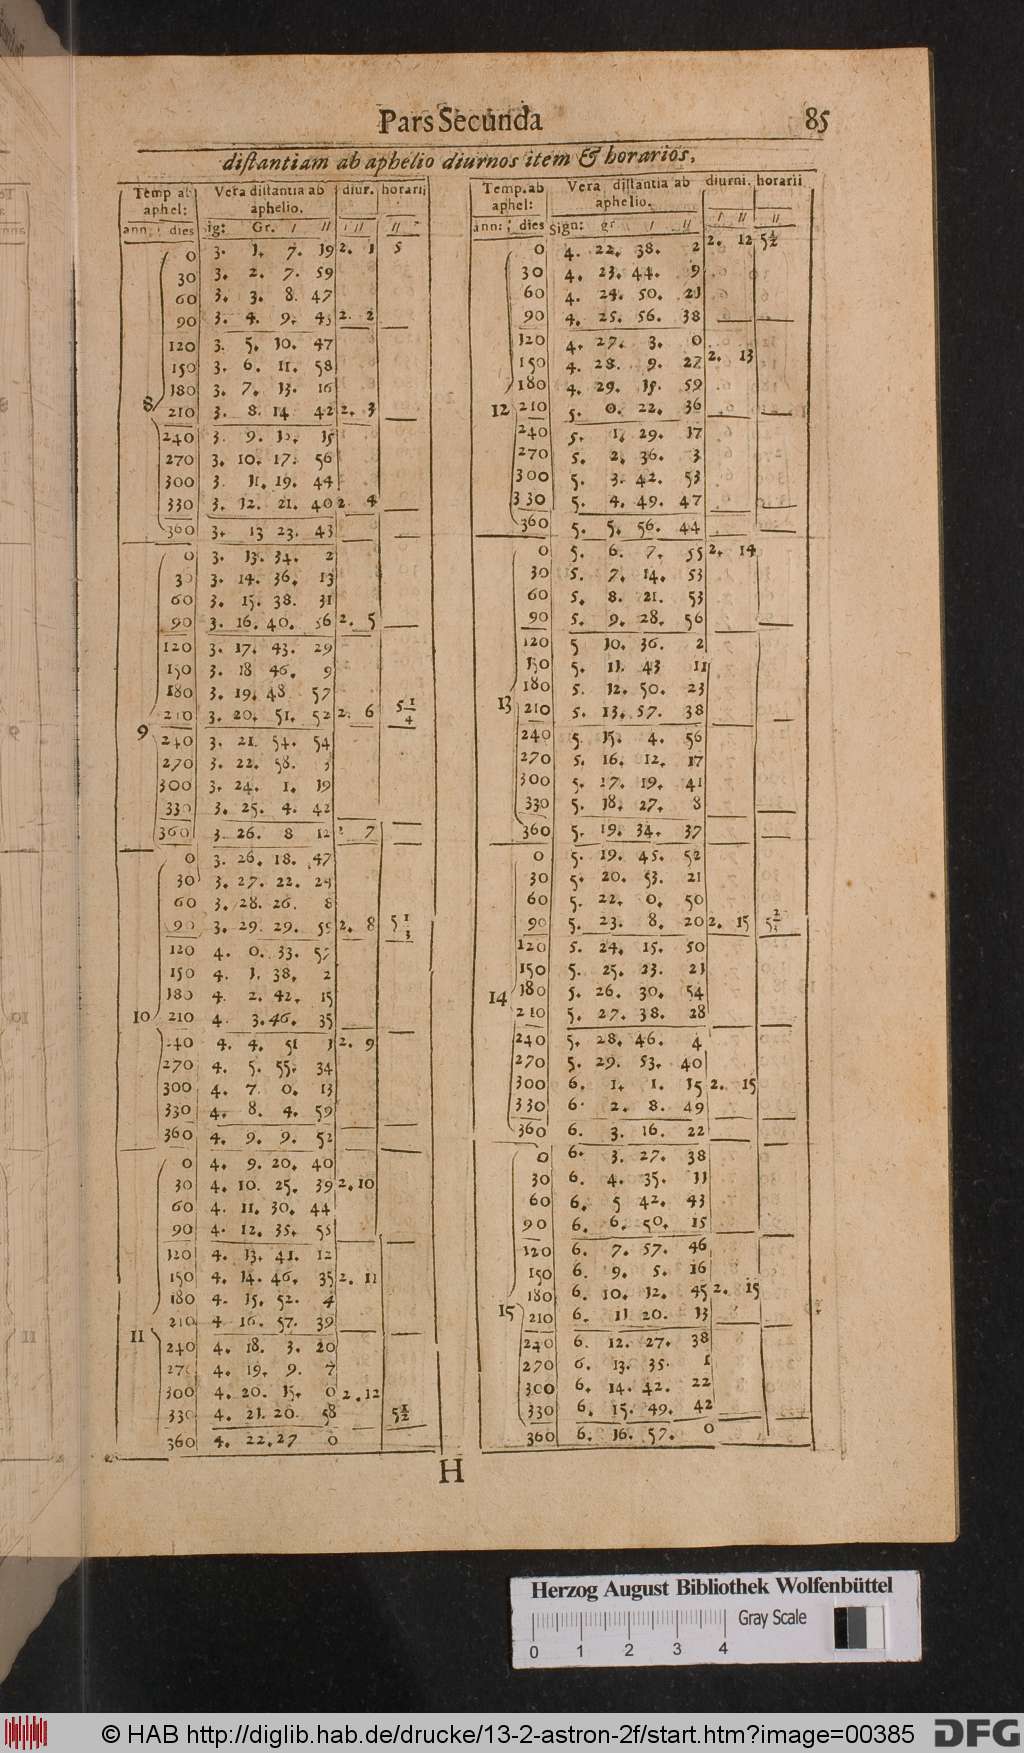 Pars Secunda 85
distantiam ab aphelio diurnos item & horarios,
Temp ab aphel: Vera distantia ab aphelio. diur. horarii
ann: dies sig: Gr. / // / // //
8
0 3. 1. 7. 19 2. 1 5
30 3. 2. 7. 59
60 3. 3. 8. 47
90 3. 4. 9. 43 2. 2
120 3. 5. 10. 47
150 3. 6. 11. 58
180 3. 7. 13. 16
210 3. 8. 14 42 2. 3
240 3. 9. 15
270 3. 10. 17. 56
300 3. 11. 19. 44
330 3. 12. 21. 40 2. 4
360 3. 13 23. 43
9
0 3. 13. 34. 2
30 3. 14. 36. 13
60 3. 15. 38. 31
90 3. 16. 40. 56 2. 5
120 3. 17. 43. 29
150 3. 18 46. 9
180 3. 19. 48 57
210 3. 20. 51. 52 2. 6 5 1/4
240 3. 21. 54. 54
270 3. 22. 58. 3
300 3. 24. 1. 19
330 3. 25. 4. 42
360 3. 26. 8 12 2 7
10
0 3. 26. 18. 47
30 3. 27. 22. 24
60 3. 28. 26. 8
90 3. 29. 29. 59 2. 8 5 1/3
120 4. 0. 33.
150 4. 1. 38. 2
180 4. 2. 42. 15
210 4. 3. 46. 35
240 4. 4. 51 3 2. 9
270 4. 5. 55. 34
300 4. 7. 0. 13
330 4. 8. 4. 59
360 4. 9. 9. 52
11
0 4. 9. 20. 40
30 4. 10. 25. 39 2. 10
60 4. 11. 30. 44
90 4. 12. 35. 55
120 4. 13. 41. 12
150 4. 14. 46. 35 2. 11
180 4. 15. 52. 4
210 4 16. 57. 39
240 4. 18. 3. 20
270 4. 19. 9. 7
300 4. 20. 15. 0 2. 12
330 4. 21. 20. 58 5 1/2
360 4. 22. 27 0
Temp. ab aphel: Vera distantia ab aphelio. diurni. horarii
ann: dies Sign: gr / // / // //
12
0 4. 22. 38. 2 2. 12 5 1/2
30 4. 23. 44. 9
60 4. 24. 50. 21
90 4. 25. 56. 38
120 4. 27. 3. 0
150 4. 28. 9. 27 2. 13
180 4. 29. 15. 59
210 5. 0. 22. 36
240 5. 1. 29. 17
270 5. 2. 36. 3
300 5. 3. 42. 53
330 5. 4. 49. 47
360 5. 5. 56. 44
13
0 5. 6. 7. 55 2. 14
30 5. 7. 14. 53
60 5. 8. 21. 53
90 5. 9. 28. 56
120 5 10. 36. 2
150 5. 11. 43 11
180 5. 12. 50. 23
210 5. 13. 57. 38
240 5. 15. 4. 56
270 5. 16. 12. 17
300 5. 17. 19. 41
330 5. 18. 27. 8
360 5. 19. 34. 37
14
0 5. 19. 45. 52
30 5. 20. 53. 21
60 5. 22. 0. 50
90 5. 23. 8. 20 2. 15
120 5. 24. 15. 50
150 5. 25. 23. 21
180 5. 26. 30. 54
210 5. 27. 38. 28
240 5. 28. 46. 4
270 5. 29. 53. 40
300 6. 1. 1. 15 2. 15
330 6. 2. 8. 49
360 6. 3. 16. 22
15
0 6. 3. 27. 38
30 6. 4. 35. 11
60 6. 5 42. 43
90 6. 6. 50. 15
120 6. 7. 57. 46
150 6. 9. 5. 16
180 6. 10. 12. 45 2. 15
210 6. 11 20. 13
240 6. 12. 27. 38
270 6. 13. 35. 1
300 6. 14. 42. 22
330 6. 15. 49. 42
360 6. 16. 57. 0
H
Herzog August Bibliothek Wolfenbüttel
0 1 2 3 4 Gray Scale
© HAB http://diglib.hab.de/drucke/13-2-astron-2f/start.htm?image=00385 DFG